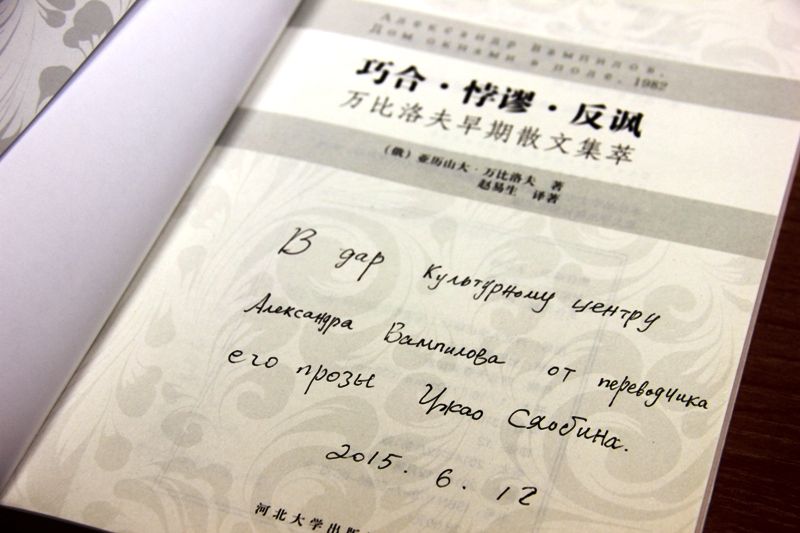 Александр Вампилов.
Дом окнами в поле. 1982
巧合·悖谬·反讽
万比洛夫早期散文集萃
(俄) 亚历山大·万比洛夫 著
赵易生 译著
В дар Культурному центру
Александра Вампилова от переводчика
его прозы Чжао Сяобина.
2015. 6. 12
河北大学出版